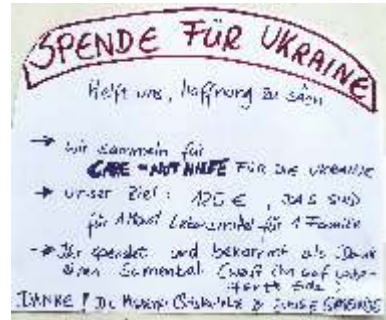 SPENDE FÜR UKRAINE
Helft uns, Hoffnung zu säen
→ Wir sammeln für
CARE - NOTHILFE FÜR DIE UKRAINE
→ Unser Ziel: 120 €, DAS SIND
für 1 Monat Lebensmittel für 1 Familie
→ Ihr spendet und bekommt als Dank
einen Samenball (werft ihn auf
Erde!
DANKE! &